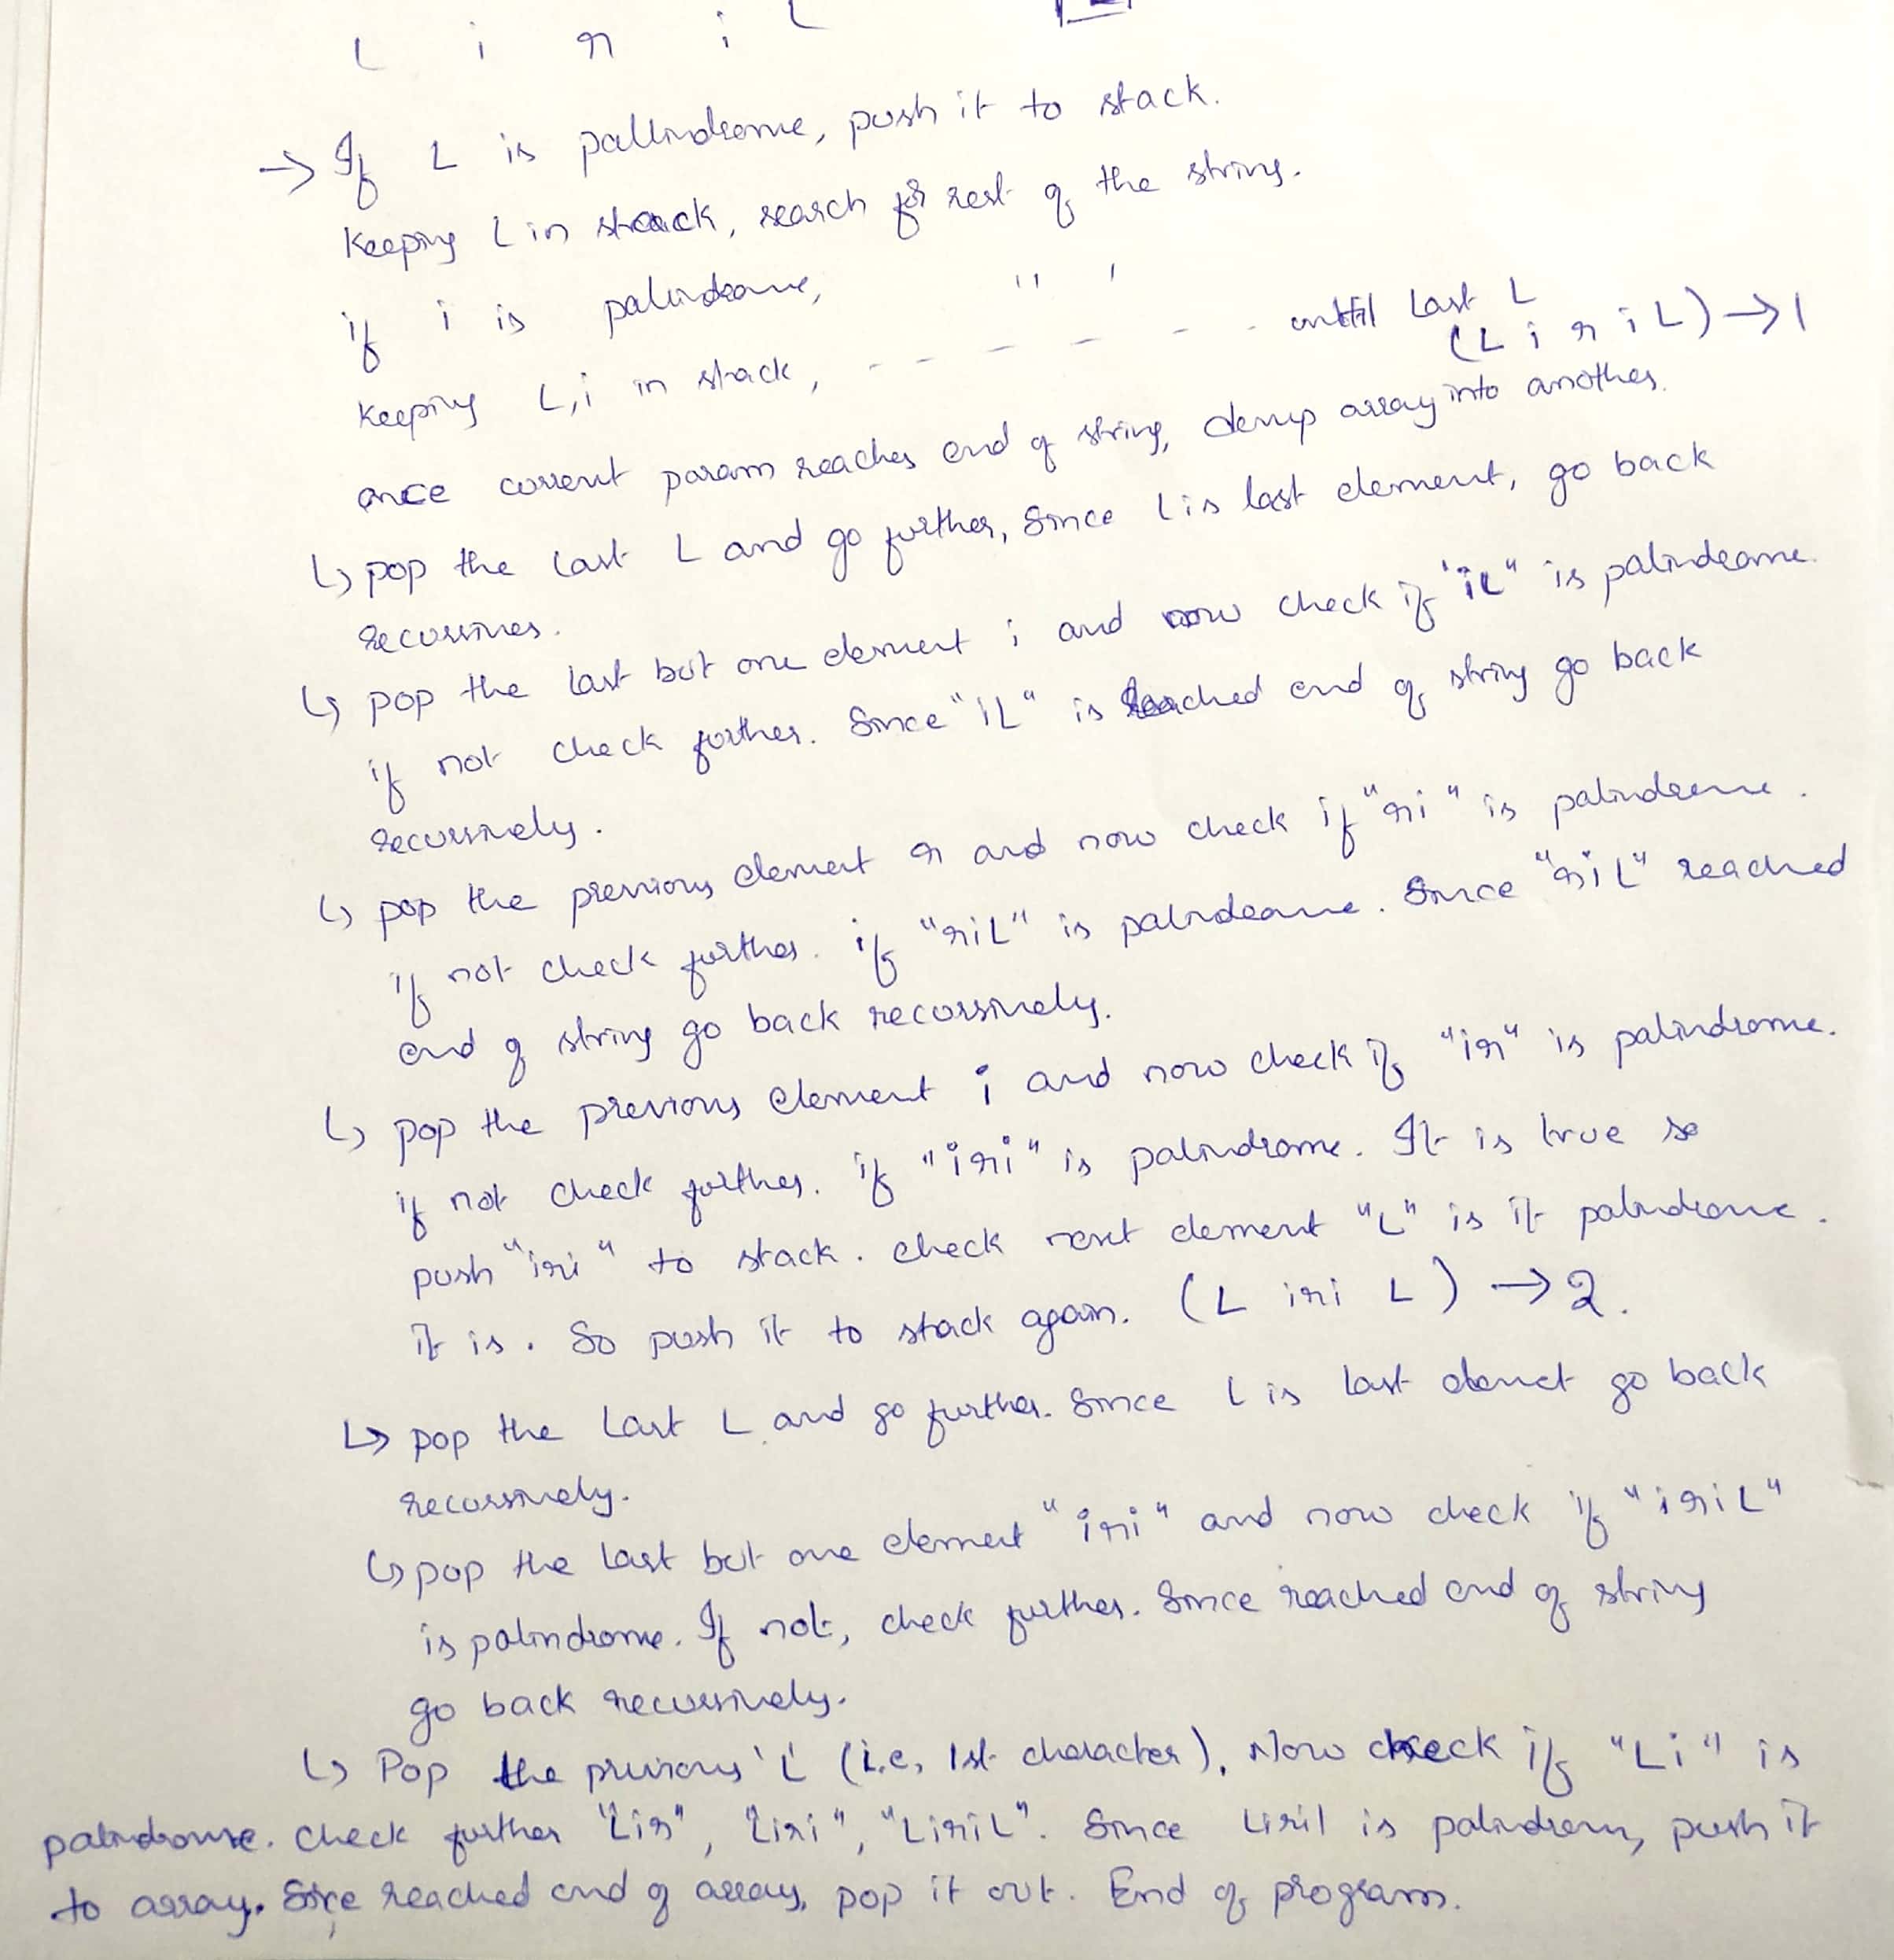 L i r i L
→ If L is pallindrome, push it to stack.
Keeping L in stack, search for rest of the string.
if i is palindrome, " '
Keeping L,i in stack, - - - - - - until last L
(L i r i L) → 1
once current param reaches end of string, dump array into another.
↳ pop the last L and go further, Since L is last element, go back
recursives.
↳ pop the last but one element i and now check if "iL" is palindrome.
if not check further. Since "iL" is reached end of string go back
recursively.
↳ pop the previous element r and now check if "ri" is palindrome.
if not check further. if "riL" is palindrome. Since "riL" reached
end of string go back recursively.
↳ pop the previous element i and now check if "ir" is palindrome.
if not check further. if "iri" is palindrome. It is true so
push "iri" to stack. check next element "L" is it palindrome.
it is. So push it to stack again. (L iri L) → 2.
↳ pop the last L and go further. Since L is last element go back
recursively.
↳ pop the last but one element "iri" and now check if "iriL"
is palindrome. If not, check further. Since reached end of string
go back recursively.
↳ Pop the previous 'L' (i.e, 1st character). Now check if "Li" is
palindrome. check further "Lir", "Liri", "LiriL". Since Liril is palindrom, push it
to array. Since reached end of array, pop it out. End of program.